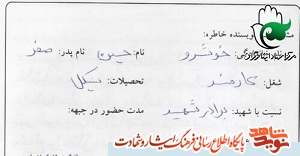 نویسنده خاطره:
خوشرو نام: حمیده نام پدر: صفر
شغل: کارمند تحصیلات: سیکل
نسبت با شهید: برادر شهید مدت حضور در جبهه:
نوید شاهد پایگاه اطلاع رسانی فرهنگ ایثار و شهادت